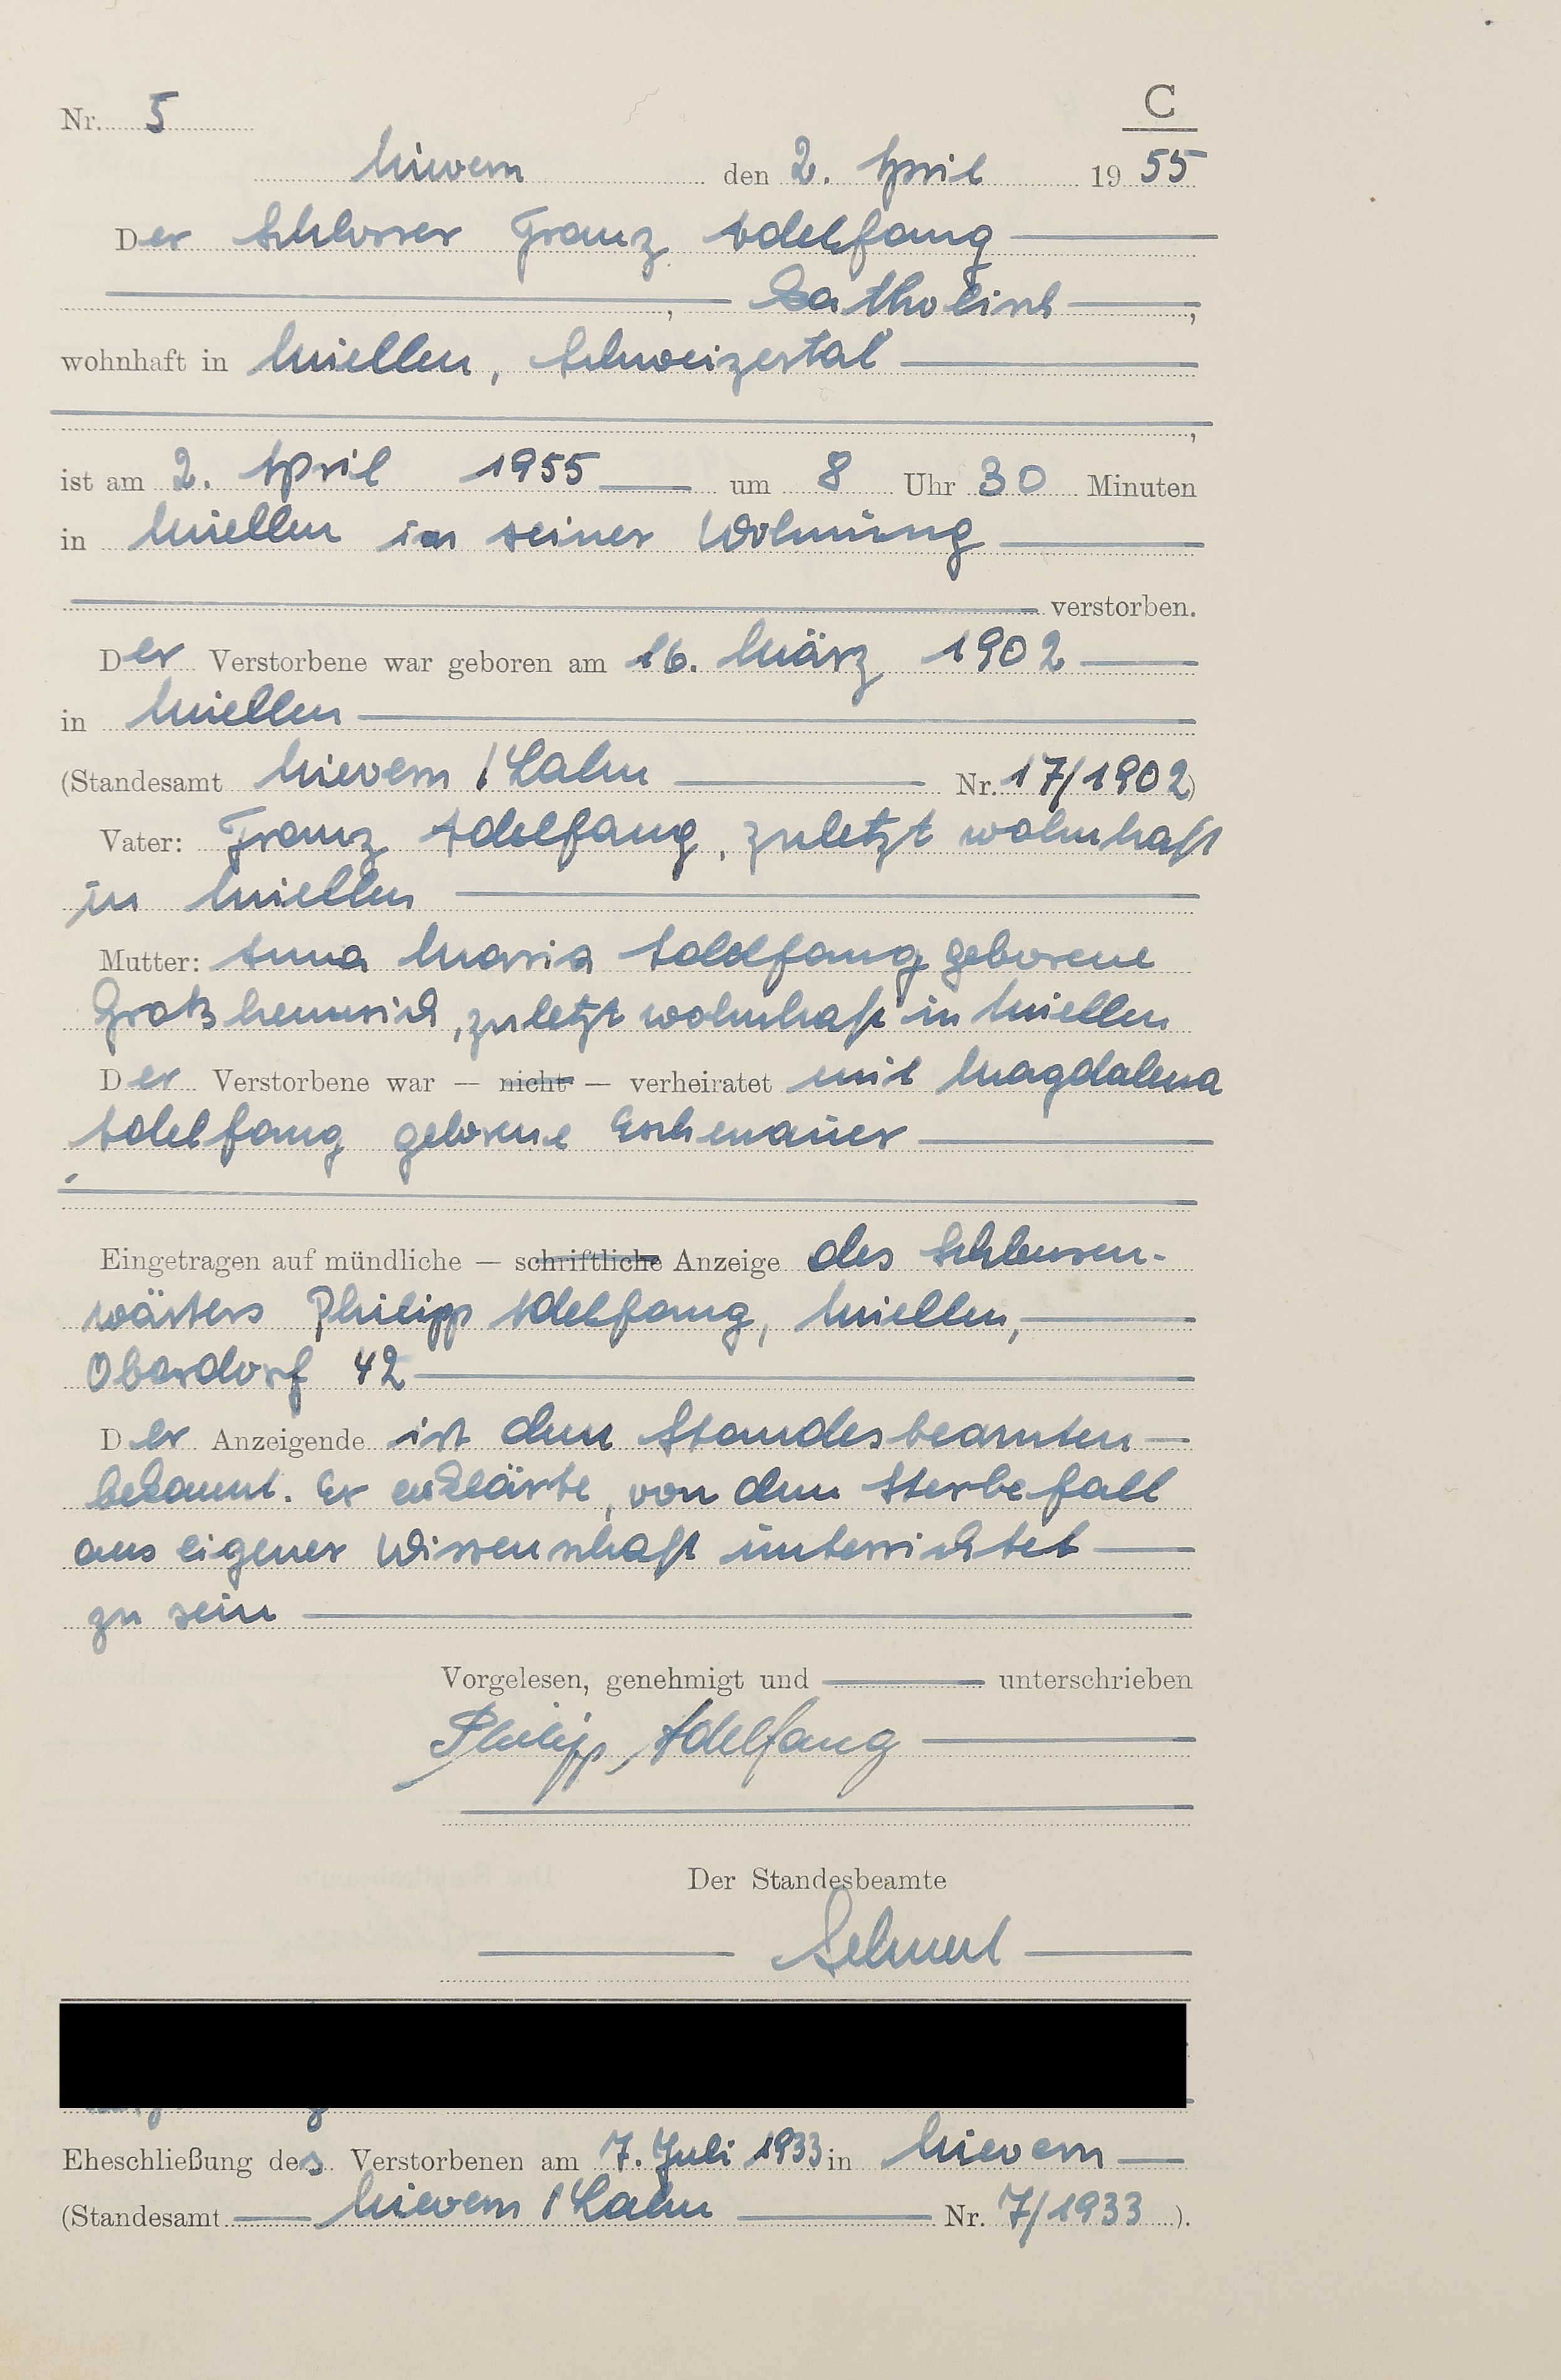 Nr. 5
C
Nievern den 2. April 1955
Der Schlosser Franz Adelfang
, katholisch ,
wohnhaft in Miellen, Schweizertal
,
ist am 2. April 1955 um 8 Uhr 30 Minuten
in Miellen in seiner Wohnung
verstorben.
Der Verstorbene war geboren am 16. März 1902
in Miellen
(Standesamt Nievern / Lahn Nr. 17/1902)
Vater: Franz Adelfang, zuletzt wohnhaft
in Miellen
Mutter: Anna Maria Adelfang geborene
zuletzt wohnhaft in Miellen
Der Verstorbene war — nicht — verheiratet mit Magdalena
Adelfang geborene Eschenauer
Eingetragen auf mündliche — schriftliche Anzeige des Schleusen-
wärters Philipp Adelfang, Miellen,
Oberdorf 42
Der Anzeigende ist dem Standesbeamten
bekannt. Er erklärte, von dem Sterbefall
aus eigener Wissenschaft unterrichtet
zu sein
Vorgelesen, genehmigt und unterschrieben
Philipp Adelfang
Der Standesbeamte
Eheschließung des Verstorbenen am 7. Juli 1933 in Nievern
(Standesamt Nievern / Lahn Nr. 7/1933).